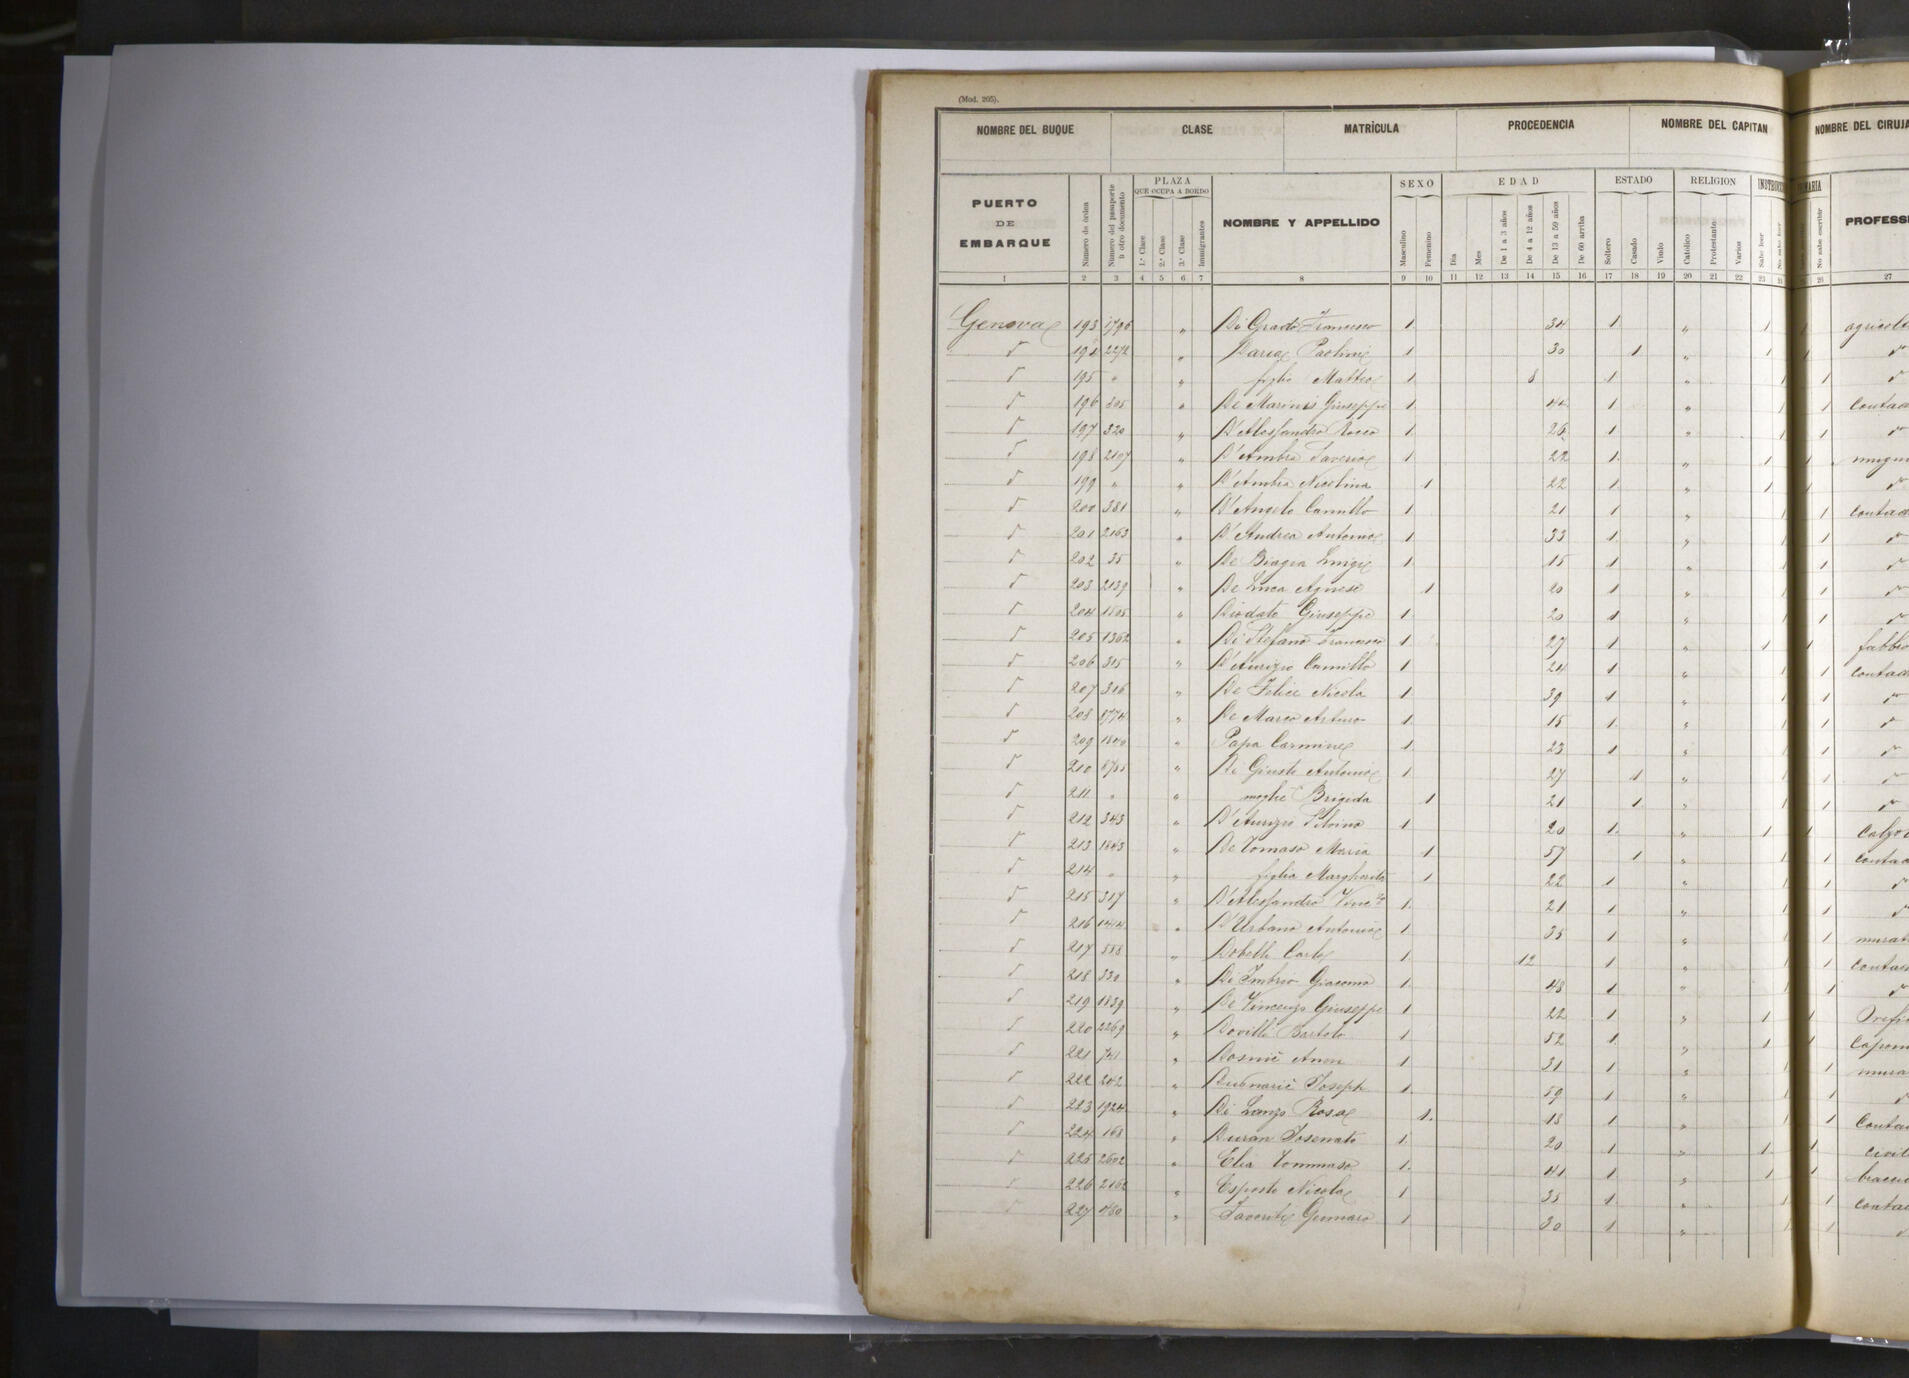 (Mod. 205).
NOMBRE DEL BUQUE CLASE MATRÍCULA PROCEDENCIA NOMBRE DEL CAPITAN NOMBRE DEL CIRUJA
PUERTO DE EMBARQUE Número de órden Número del pasaporte ú otro documento PLAZA QUE OCUPA A BORDO 1.ª Clase 2.ª Clase 3.ª Clase Inmigrantes NOMBRE Y APPELLIDO SEXO Masculino Femenino EDAD Dia Mes De 1 a 3 años De 4 a 12 años De 13 a 59 años De 60 arriba ESTADO Soltero Casado Viudo RELIGION Católico Protestante Varios Sabe leer No sabe escribir PROFESS
1 2 3 4 5 6 7 8 9 10 11 12 13 14 15 16 17 18 19 20 21 22 23 26 27
Genova 193 1796 " Di Grado Francesco 1 34 1 " 1 agricolt
d 194 2272 " Paolini 1 30 1 " 1 d
d 195 " " figlio Matteo 1 8 1 " 1 1 d
d 196 305 " De Marinis Giuseppe 1 1 " 1 1 Contad
d 197 320 " D'Alessandro Rocco 1 26 1 " 1 1 d
d 198 2107 " D'Ambra Saverio 1 22 1 " 1 1
d 199 " " D'Ambra Nicolina 1 22 1 " 1 1 d
d 200 381 " D'Angelo Camillo 1 21 1 " 1 1 Contad
d 201 2163 " D'Andrea Antonio 1 33 1 " 1 1 d
d 202 35 " De Biagia Luigi 1 15 1 " 1 1 d
d 203 2139 " De Luca Agnese 1 20 1 " 1 1 d
d 204 1505 " Diodato Giuseppe 1 20 1 " 1 1 d
d 205 1362 " Di Stefano Francesco 1 27 1 " 1 1 fabbro
d 206 315 " D'Aurizio Camillo 1 24 1 " 1 1 contad
d 207 316 " De Felice Nicola 1 39 1 " 1 1 d
d 208 " De Marco Arturo 1 15 1 " 1 1 d
d 209 1840 " Papa Carmine 1 23 1 " 1 1 d
d 210 " De Giusto Antonio 1 27 1 " 1 1 d
d 211 " " moglie Brigida 1 21 1 " 1 1 d
d 212 343 " D'Aurizio Silvino 1 20 1 " 1 1 Calzo
d 213 1843 " De Tomaso Maria 1 57 1 " 1 1 contad
d 214 " " figlia Margherita 1 22 1 " 1 1 d
d 215 317 " D'Alessandro Vinc.zo 1 21 1 " 1 1 d
d 216 1414 " D'Urbano Antonio 1 35 1 " 1 1 murat
d 217 588 " Dobelli Carlo 1 12 1 " 1 1 contad
d 218 330 " Di Imbrio Giacomo 1 48 1 " 1 1 d
d 219 1839 " De Vincenzo Giuseppe 1 22 1 " 1 1 Orefi
d 220 2269 " Dovilli Bartolo 1 52 1 " 1 1
d 221 741 " Anton 1 31 1 " 1 mura
d 222 242 " Joseph 1 59 1 " 1 1 d
d 223 1924 " Di Lanzo Rosa 1 18 1 " 1 1 Contad
d 224 168 " Duran 1 20 1 " 1 1 civil
d 225 2602 " Elia Tommaso 1 41 1 " 1 1
d 226 2162 " Esposto Nicola 1 35 1 " 1 1 contad
d 227 " Favorito Gennaro 1 30 1 " 1 1